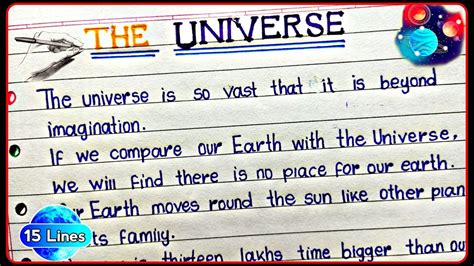 THE UNIVERSE
The universe is so vast that it is beyond
imagination.
If we compare our Earth with the Universe,
we will find there is no place for our earth.
Our Earth moves round the sun like other plan
ts family.
15 Lines
is thirteen lakhs time bigger than ou